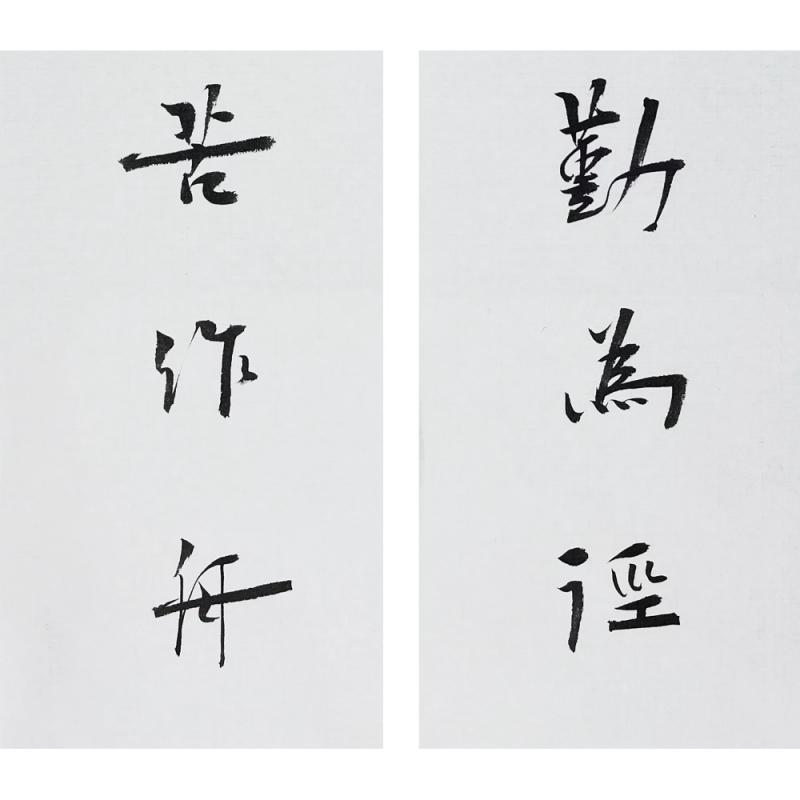 勤為徑
苦作舟